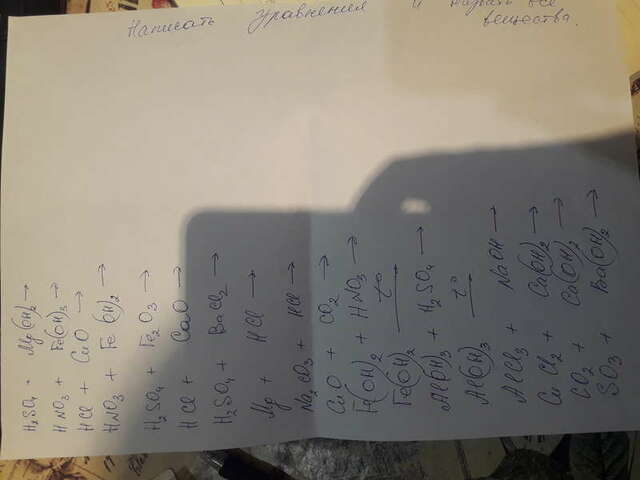 H₂SO₄ + Mg(OH)₂ →
HNO₃ + Fe(OH)₃ →
HCl + CuO →
HNO₃ + Fe(OH)₂ →
H₂SO₄ + Fe₂O₃ →
HCl + CaO →
H₂SO₄ + BaCl₂ →
Mg + HCl →
Na₂CO₃ + HCl →
CuO + CO₂ →
Fe(OH)₂ + HNO₃ →
Fe(OH)₂ t° →
Al(OH)₃ + H₂SO₄ →
Al(OH)₃ t° →
AlCl₃ + NaOH →
CuCl₂ + Ca(OH)₂ →
CO₂ + Ca(OH)₂ →
SO₃ + Ba(OH)₂ →
Написать уравнения и
вещества.